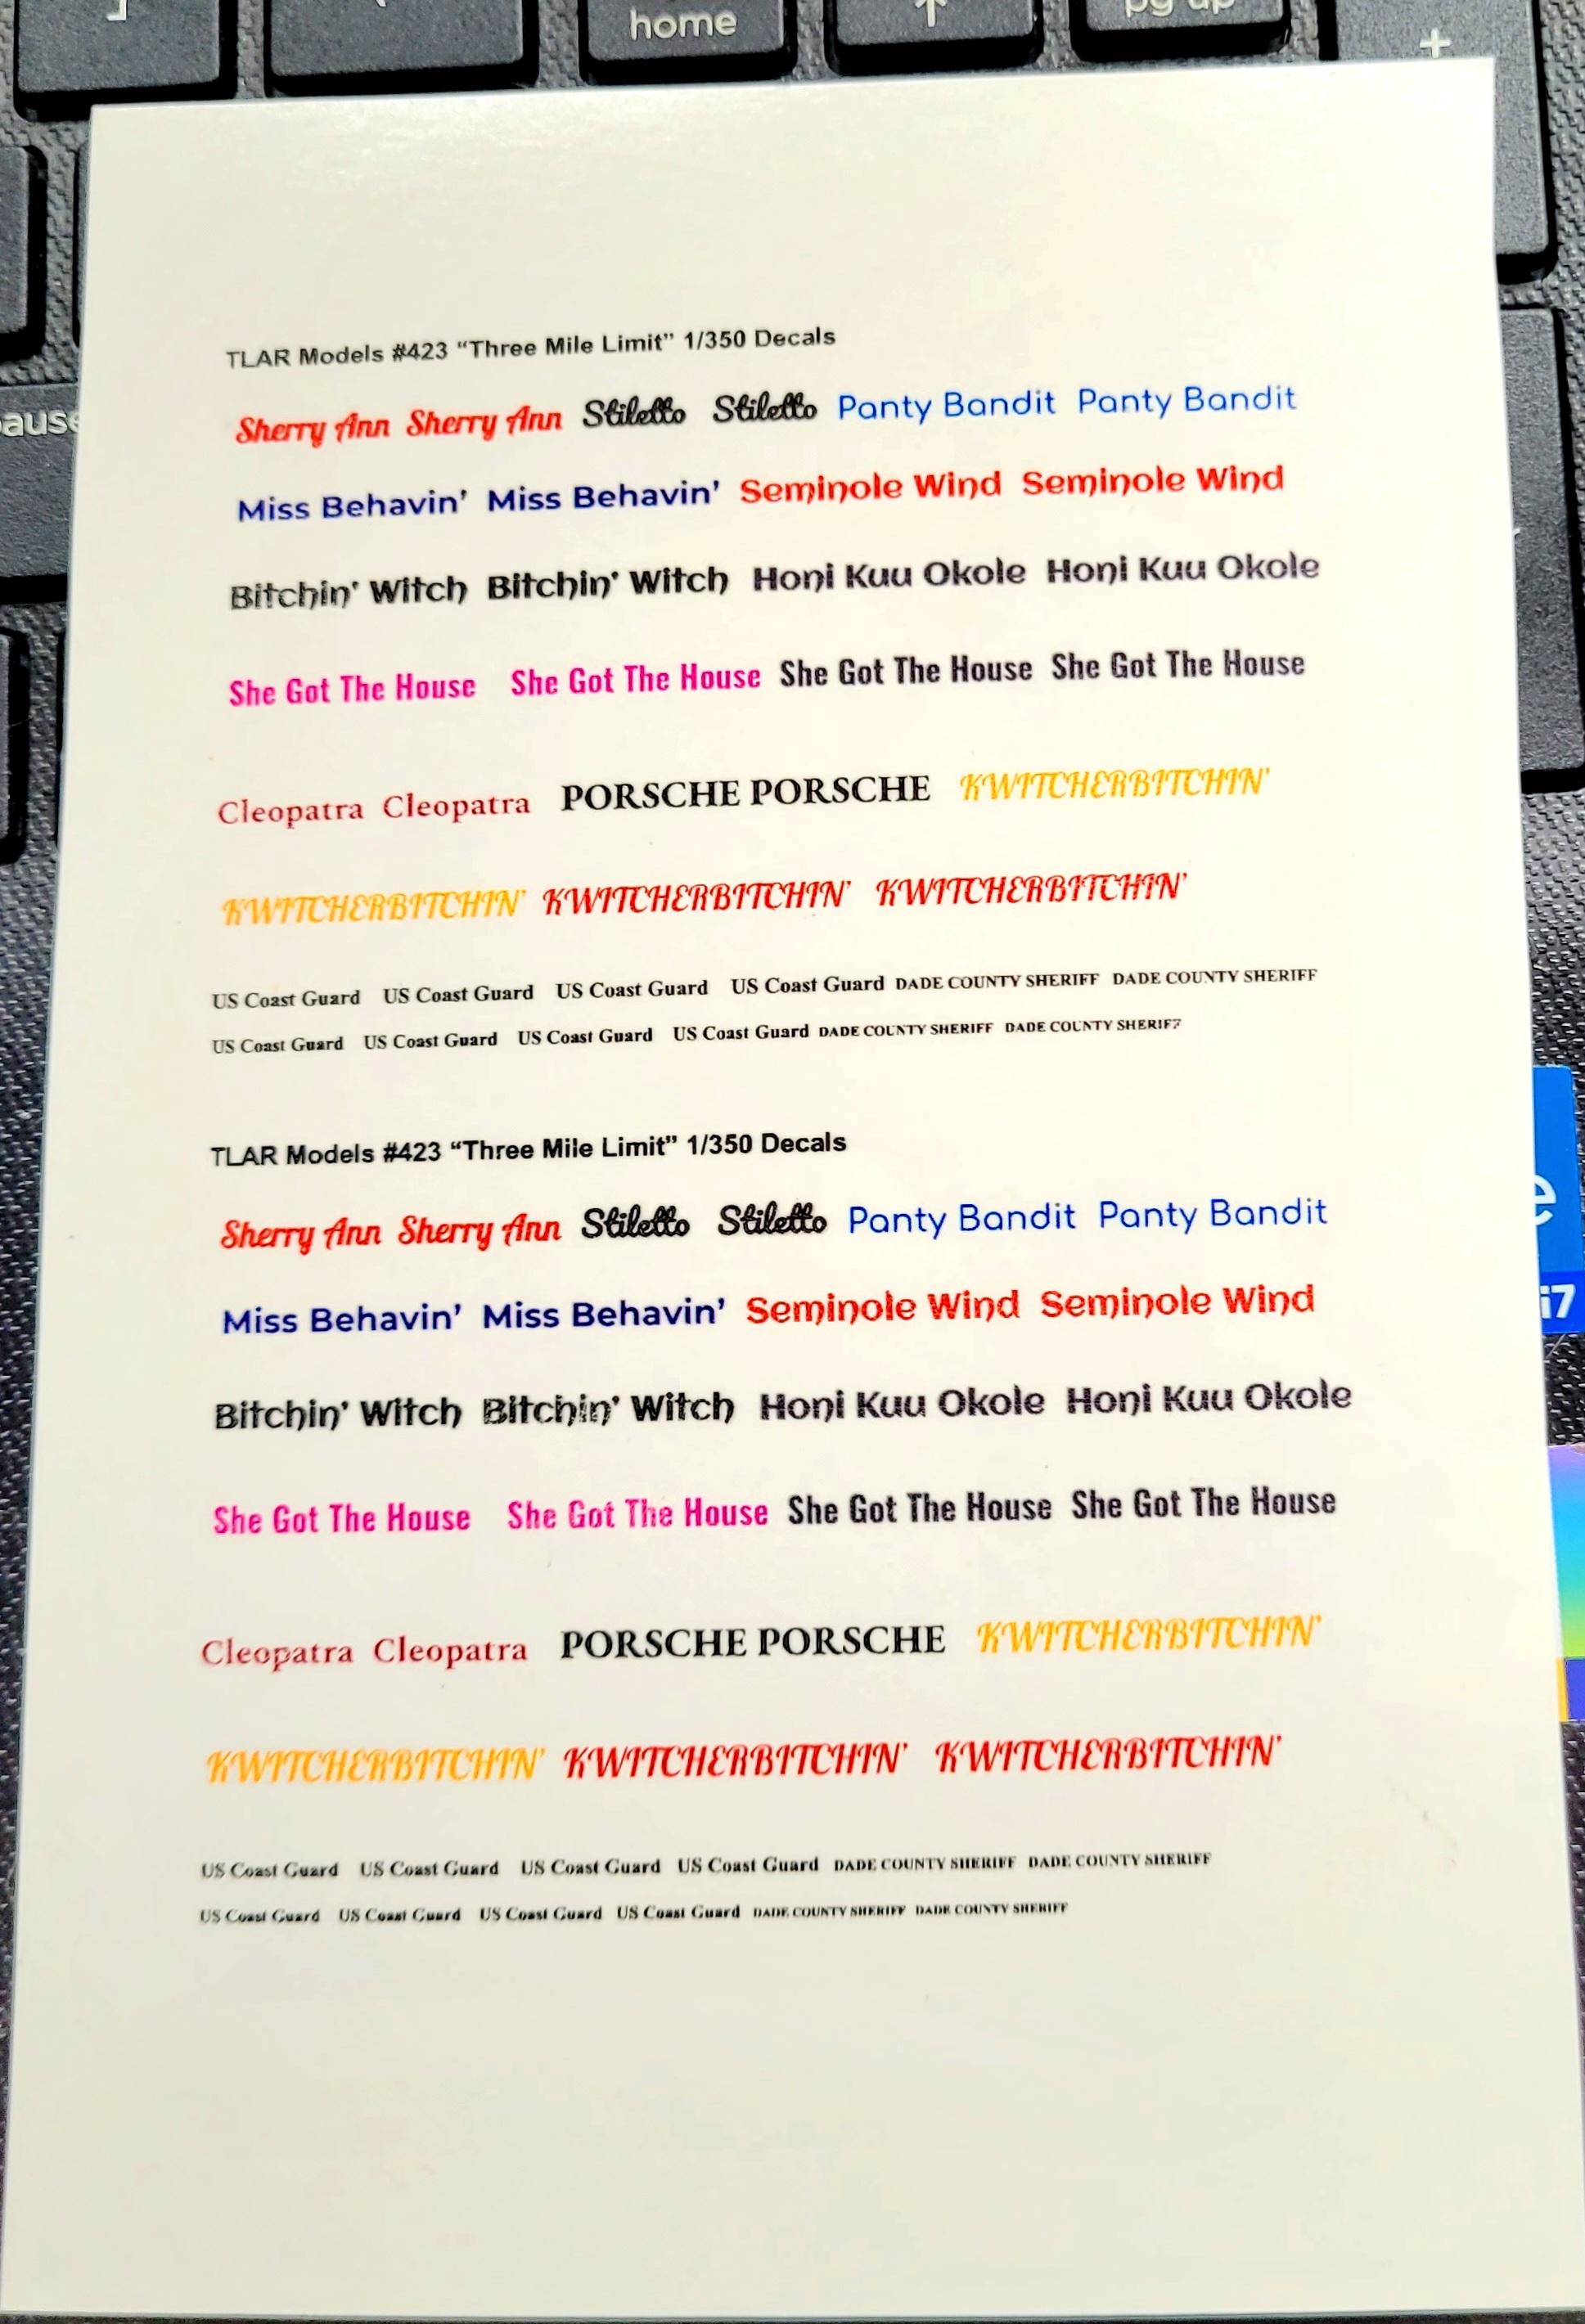 home
pg up
+
pause
TLAR Models #423 “Three Mile Limit” 1/350 Decals
Sherry Ann Sherry Ann Stiletto Stiletto Panty Bandit Panty Bandit
Miss Behavin’ Miss Behavin’ Seminole Wind Seminole Wind
Bitchin’ Witch Bitchin’ Witch Honi Kuu Okole Honi Kuu Okole
She Got The House She Got The House She Got The House She Got The House
Cleopatra Cleopatra PORSCHE PORSCHE KWITCHERBITCHIN’
KWITCHERBITCHIN’ KWITCHERBITCHIN’ KWITCHERBITCHIN’
US Coast Guard US Coast Guard US Coast Guard US Coast Guard DADE COUNTY SHERIFF DADE COUNTY SHERIFF
US Coast Guard US Coast Guard US Coast Guard US Coast Guard DADE COUNTY SHERIFF DADE COUNTY SHERIFF
TLAR Models #423 “Three Mile Limit” 1/350 Decals
Sherry Ann Sherry Ann Stiletto Stiletto Panty Bandit Panty Bandit
Miss Behavin’ Miss Behavin’ Seminole Wind Seminole Wind
Bitchin’ Witch Bitchin’ Witch Honi Kuu Okole Honi Kuu Okole
She Got The House She Got The House She Got The House She Got The House
Cleopatra Cleopatra PORSCHE PORSCHE KWITCHERBITCHIN’
KWITCHERBITCHIN’ KWITCHERBITCHIN’ KWITCHERBITCHIN’
US Coast Guard US Coast Guard US Coast Guard US Coast Guard DADE COUNTY SHERIFF DADE COUNTY SHERIFF
US Coast Guard US Coast Guard US Coast Guard US Coast Guard DADE COUNTY SHERIFF DADE COUNTY SHERIFF
i7